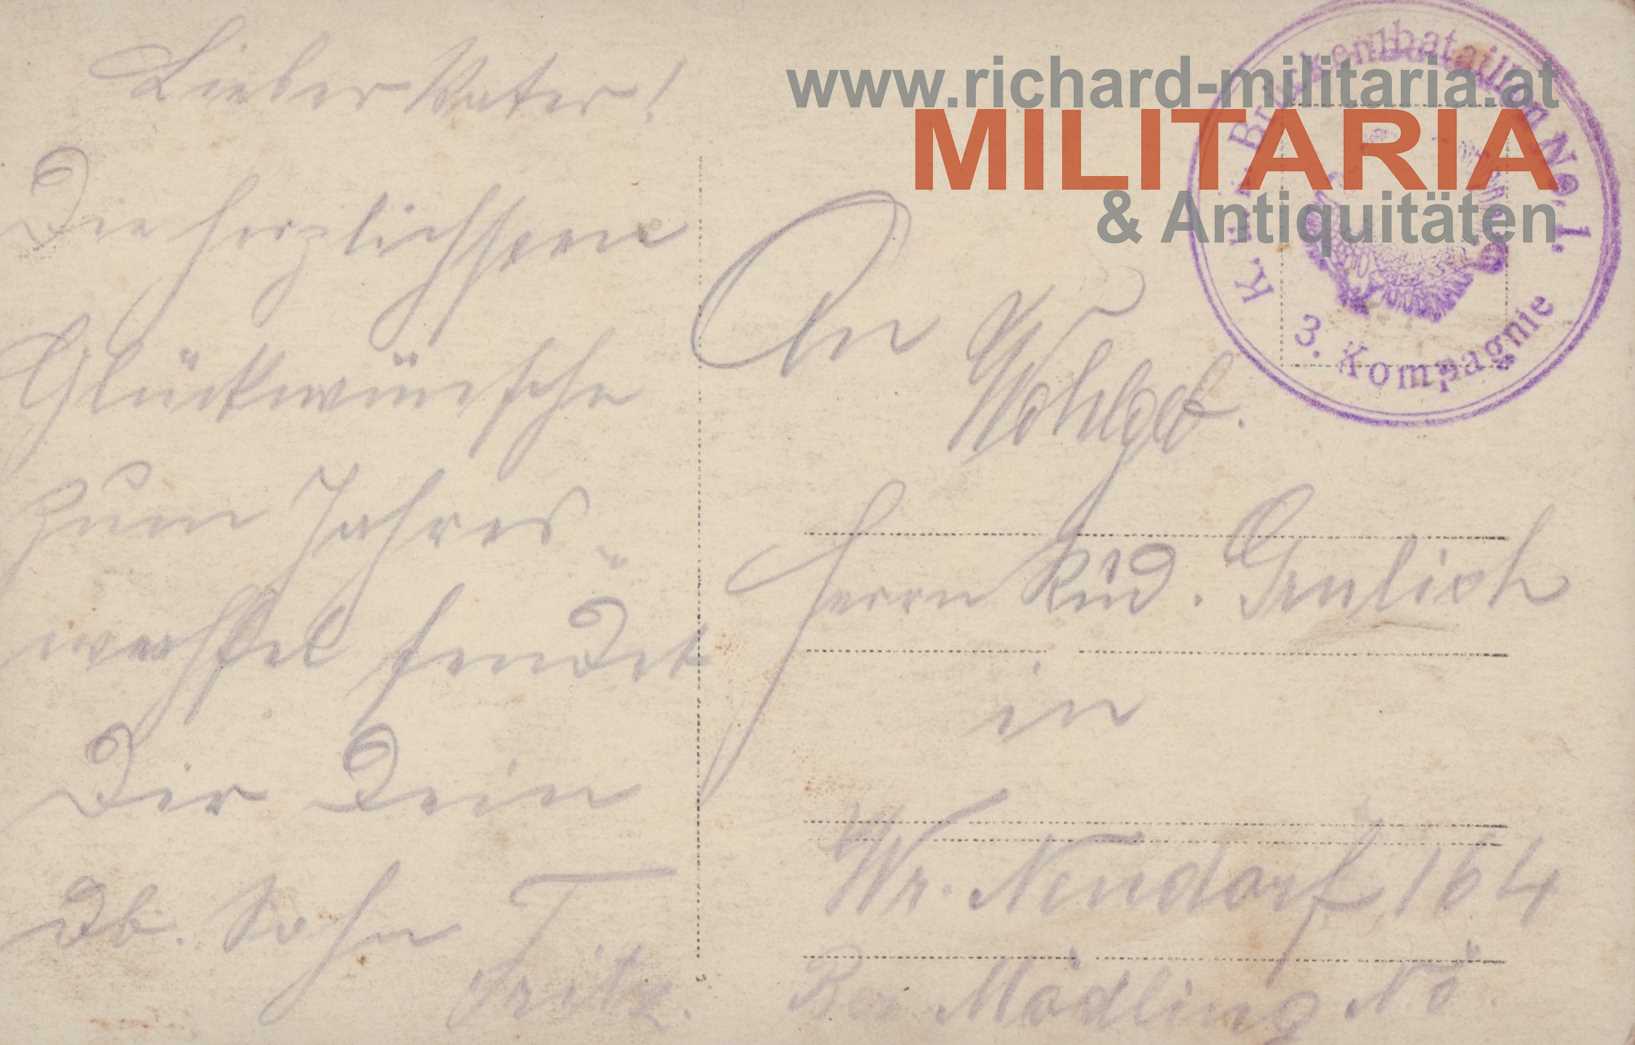 Lieber Vater!
Die herzlichsten
Glückwünsche
zum Jahres-
wechsel sendet
Dir Dein
Db. Sohn
Fritz.
www.richard-militaria.at
MILITARIA
& Antiquitäten
K. u. k. Brückenbataillon No. 1.
3. Kompagnie
An
Wohlgeb.
Herrn Rud.
in
Wr. Neudorf 164
Bez Mödling NÖ